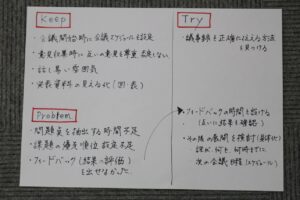 Keep
・会議開始時に会議スケジュールを設定
・意見収集時に互いの意見を尊重、否定しない
・話し易い雰囲気
・発表資料の見える化(図・表)
Problem
・問題点を抽出する時間不足
・課題の優先順位設定不足
・フィードバック(結果の評価)
を出せなかった
Try
・議事録を正確に伝える方法
を見つける
・フィードバックの時間を設ける
(互いに結果を確認)
・その後の展開を検討(具体的)
誰が、何を、何時までに
次の会議日程(スケジュール)